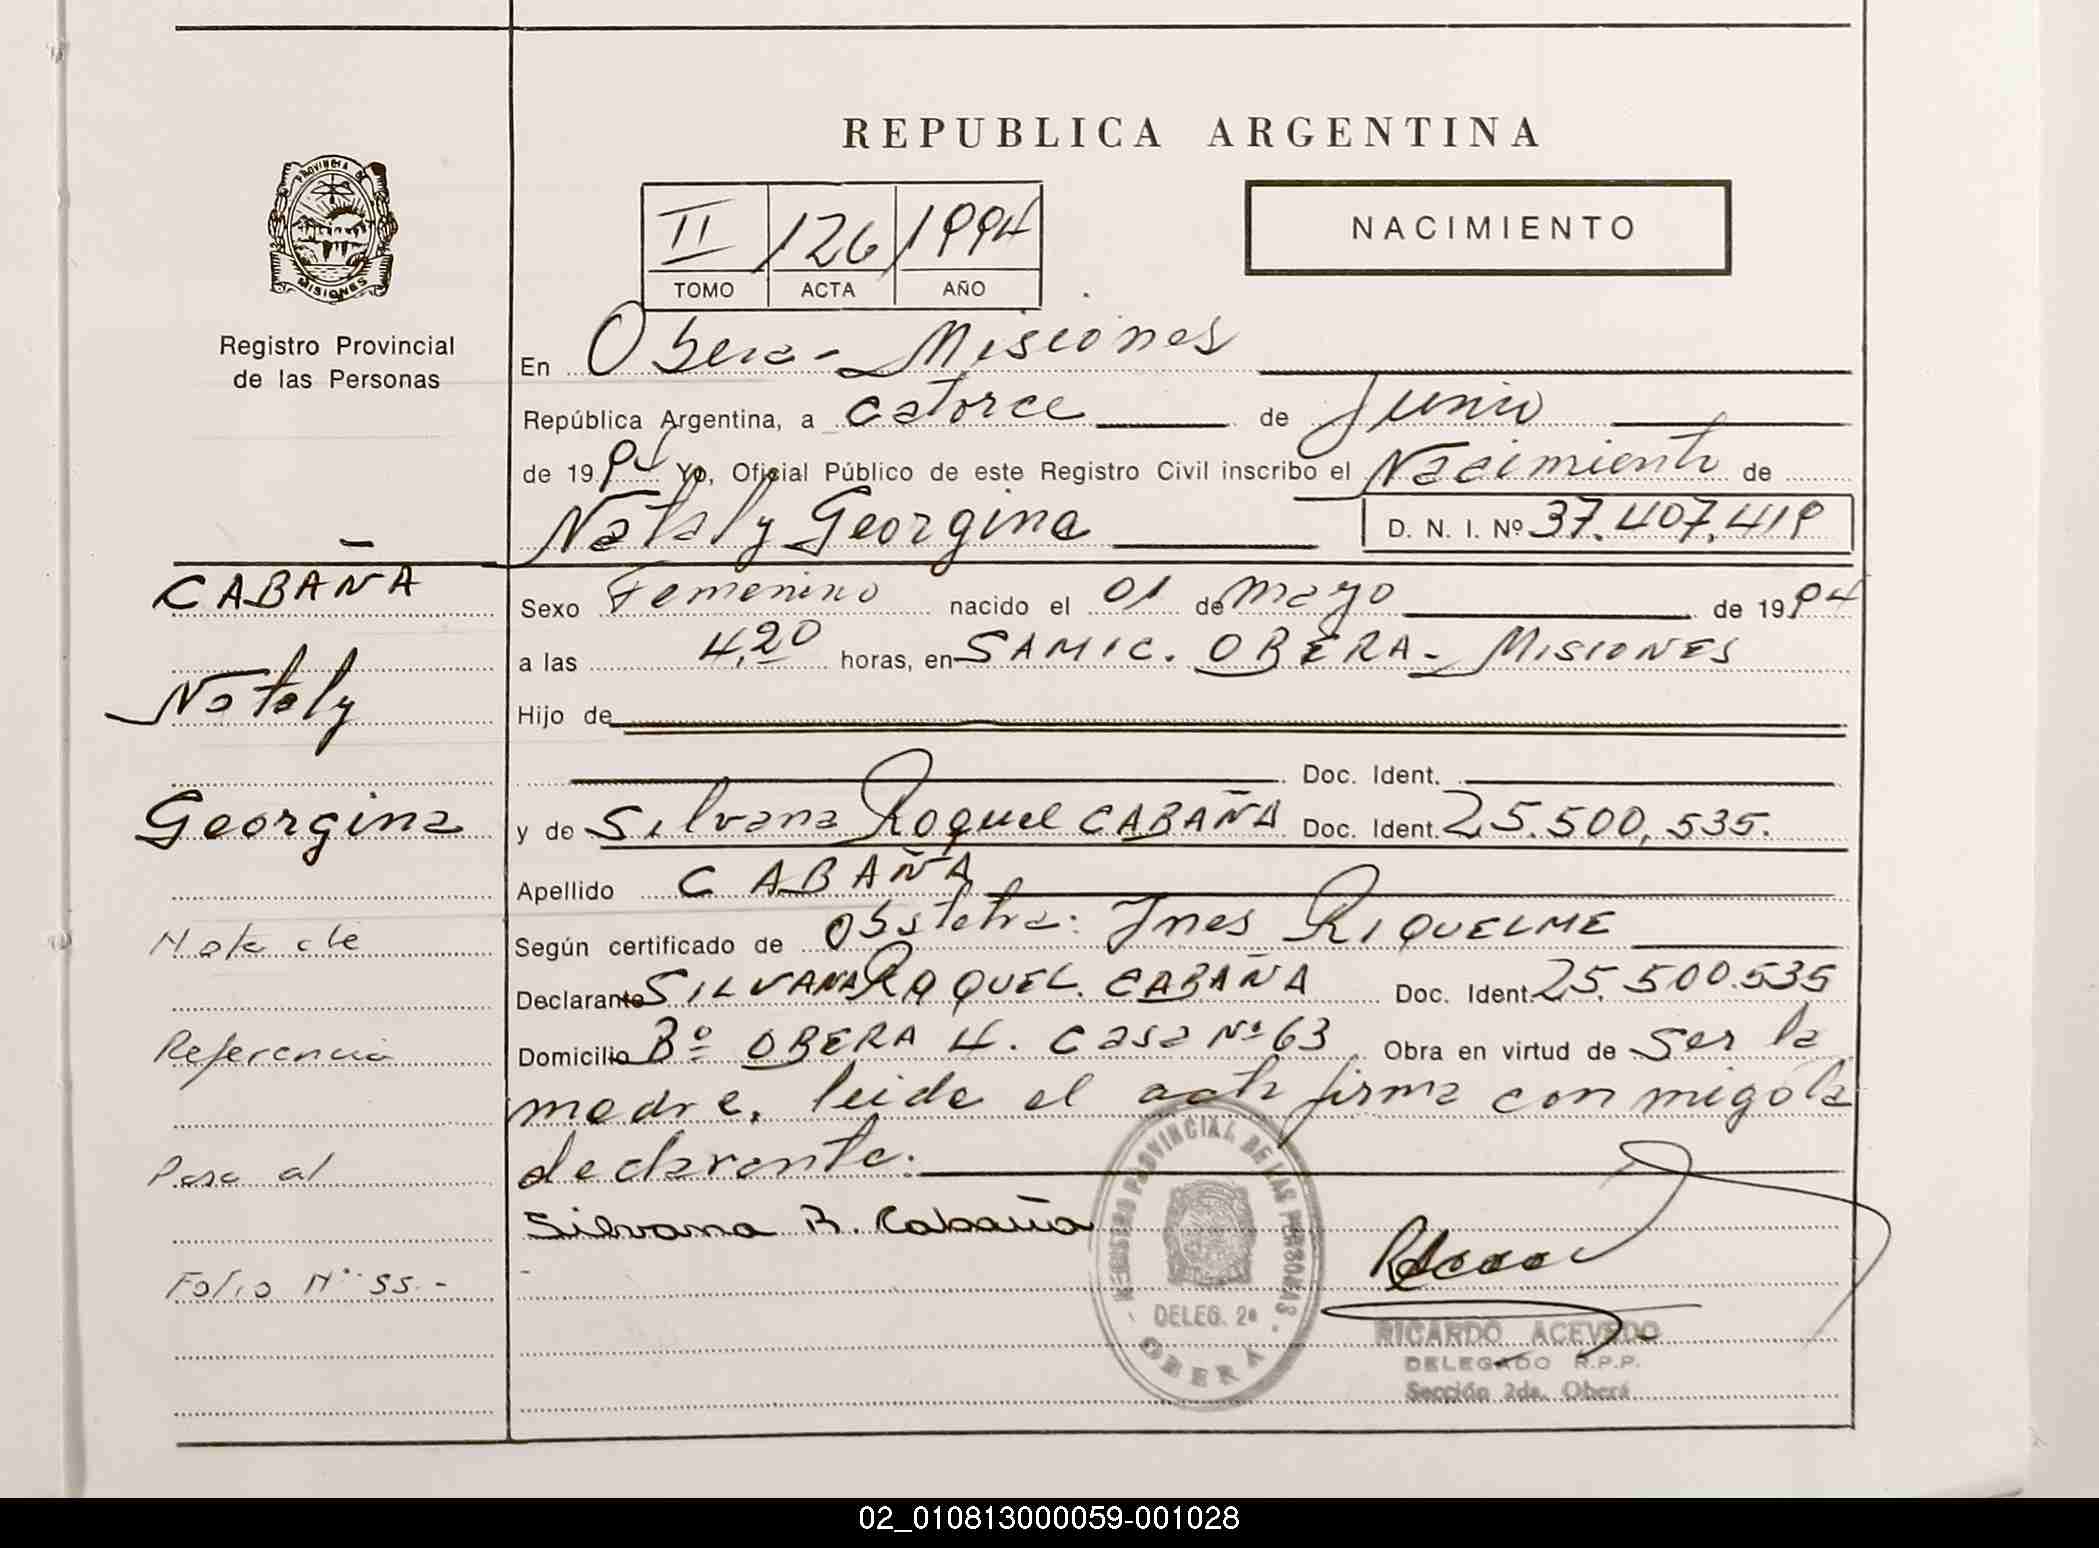 REPUBLICA ARGENTINA
PROVINCIA DE MISIONES
Registro Provincial
de las Personas
II 126 1994
TOMO ACTA AÑO
NACIMIENTO
En Obera - Misiones
República Argentina, a catorce de Junio
de 1994 Yo, Oficial Público de este Registro Civil inscribo el Nacimiento de
Nataly Georgina D. N. I. Nº 37.407.419
CABAÑA
Nataly
Georgina
Nota de
Referencia
Pasa al
Folio Nº 55.-
Sexo Femenino nacido el 01 de mayo de 1994
a las 4,20 horas, en SAMIC. OBERA - MISIONES
Hijo de
Doc. Ident.
y de Silvana Raquel CABAÑA Doc. Ident. 25.500.535.
Apellido CABAÑA
Según certificado de Obstetra: Ines RIQUELME
Declarante SILVANA RAQUEL CABAÑA Doc. Ident. 25.500.535
Domicilio Bº OBERA 4. Casa Nº 63 Obra en virtud de ser la
madre, leida el acta firma conmigo la
declarante.
Silvana R. Cabaña
REGISTRO PROVINCIAL DE LAS PERSONAS
DELEG. 2ª
OBERA
RICARDO ACEVEDO
DELEGADO R.P.P.
Sección 2da. Oberá
02_010813000059-001028